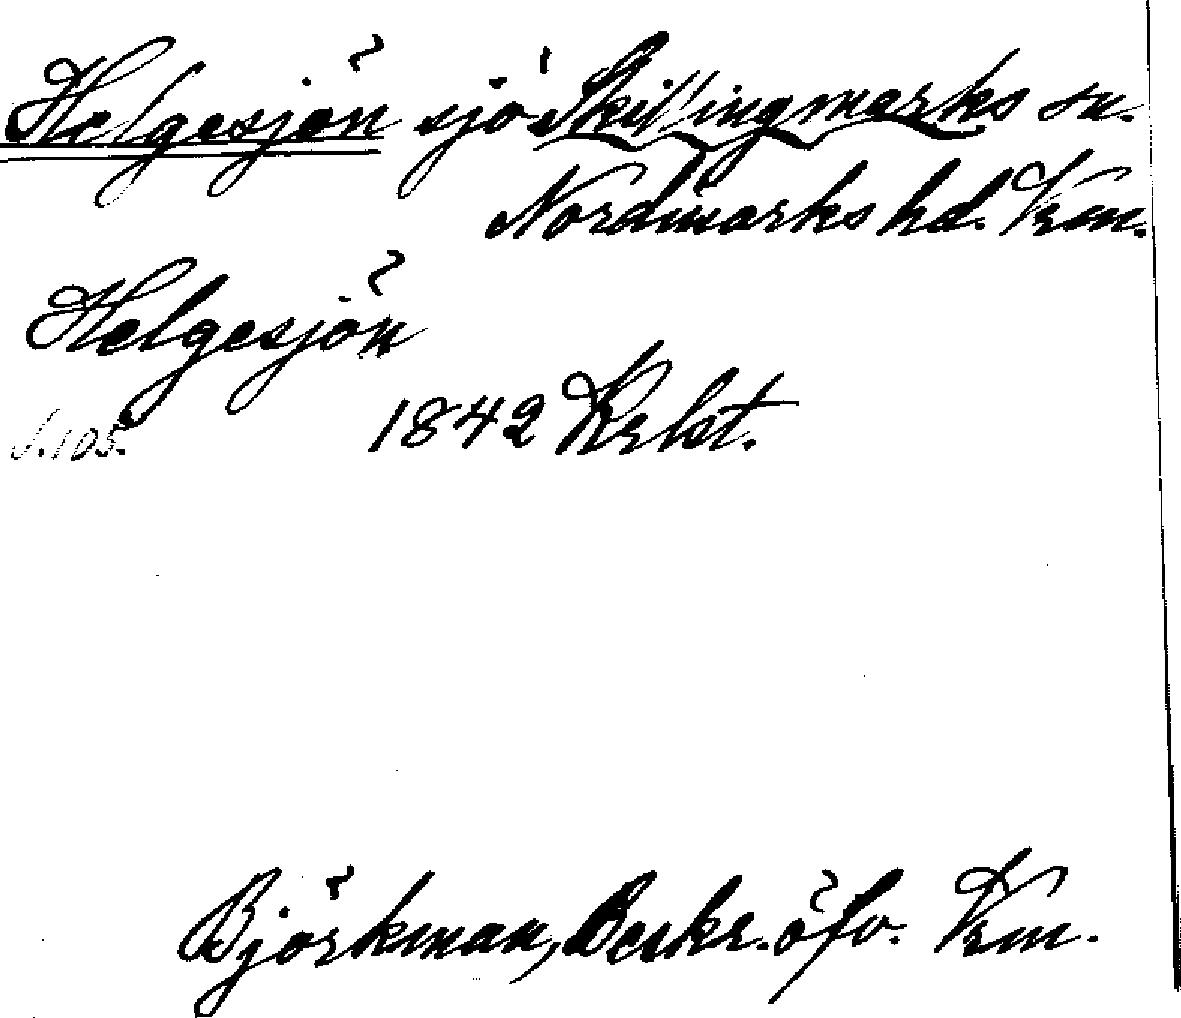 Helgesjön sjö Skillingmarks sn.
Nordmarks hd. Vrm.
Helgesjön
s. 105. 1842 Krlst.
Björkman, Beskr. öfv. Vrm.